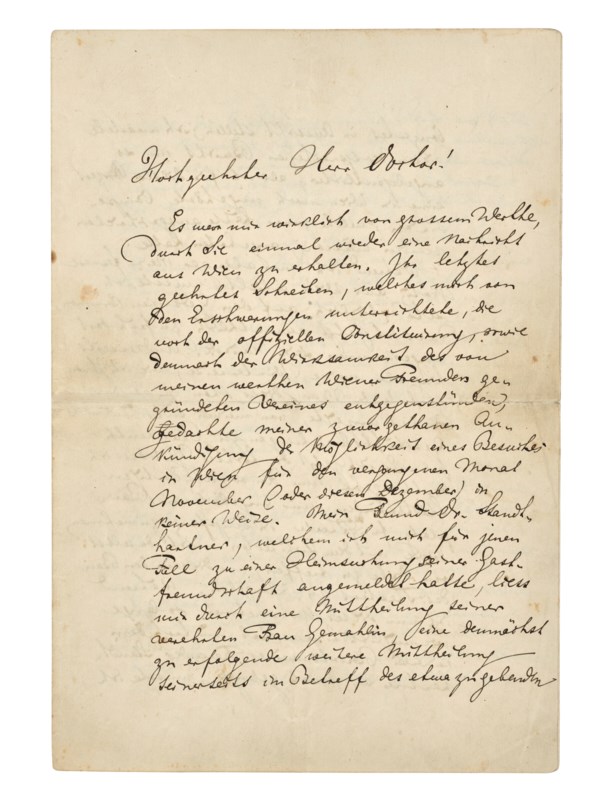 Hochgeehrter Herr Doctor!
Es war mir wirklich von grossem Werthe,
durch Sie einmal wieder eine Nachricht
aus Wien zu erhalten. Ihr letztes
geehrtes Schreiben, welches mich von
den Erschwerungen unterrichtete, die
noch der offiziellen Constituirung, sowie
demnach der Wirksamkeit des von
meinen werthen Wiener Freunden ge-
gründeten Vereines entgegenstünden,
gedachte meiner zuvorgethanen An-
kündigung der Möglichkeit eines Besuches
in Wien für den vergangenen Monat
November (oder diesen Dezember) in
keiner Weise. Mein Freund Dr. Standt-
hartner, welchem ich mich für jenen
Fall zu einer Heimsuchung seiner Gast-
freundschaft angemeldet hatte, liess
mir durch eine Mittheilung seiner
verehrten Frau Gemahlin, eine demnächst
zu erfolgende weitere Mittheilung
seinerseits im Betreff des etwa zu gebenden